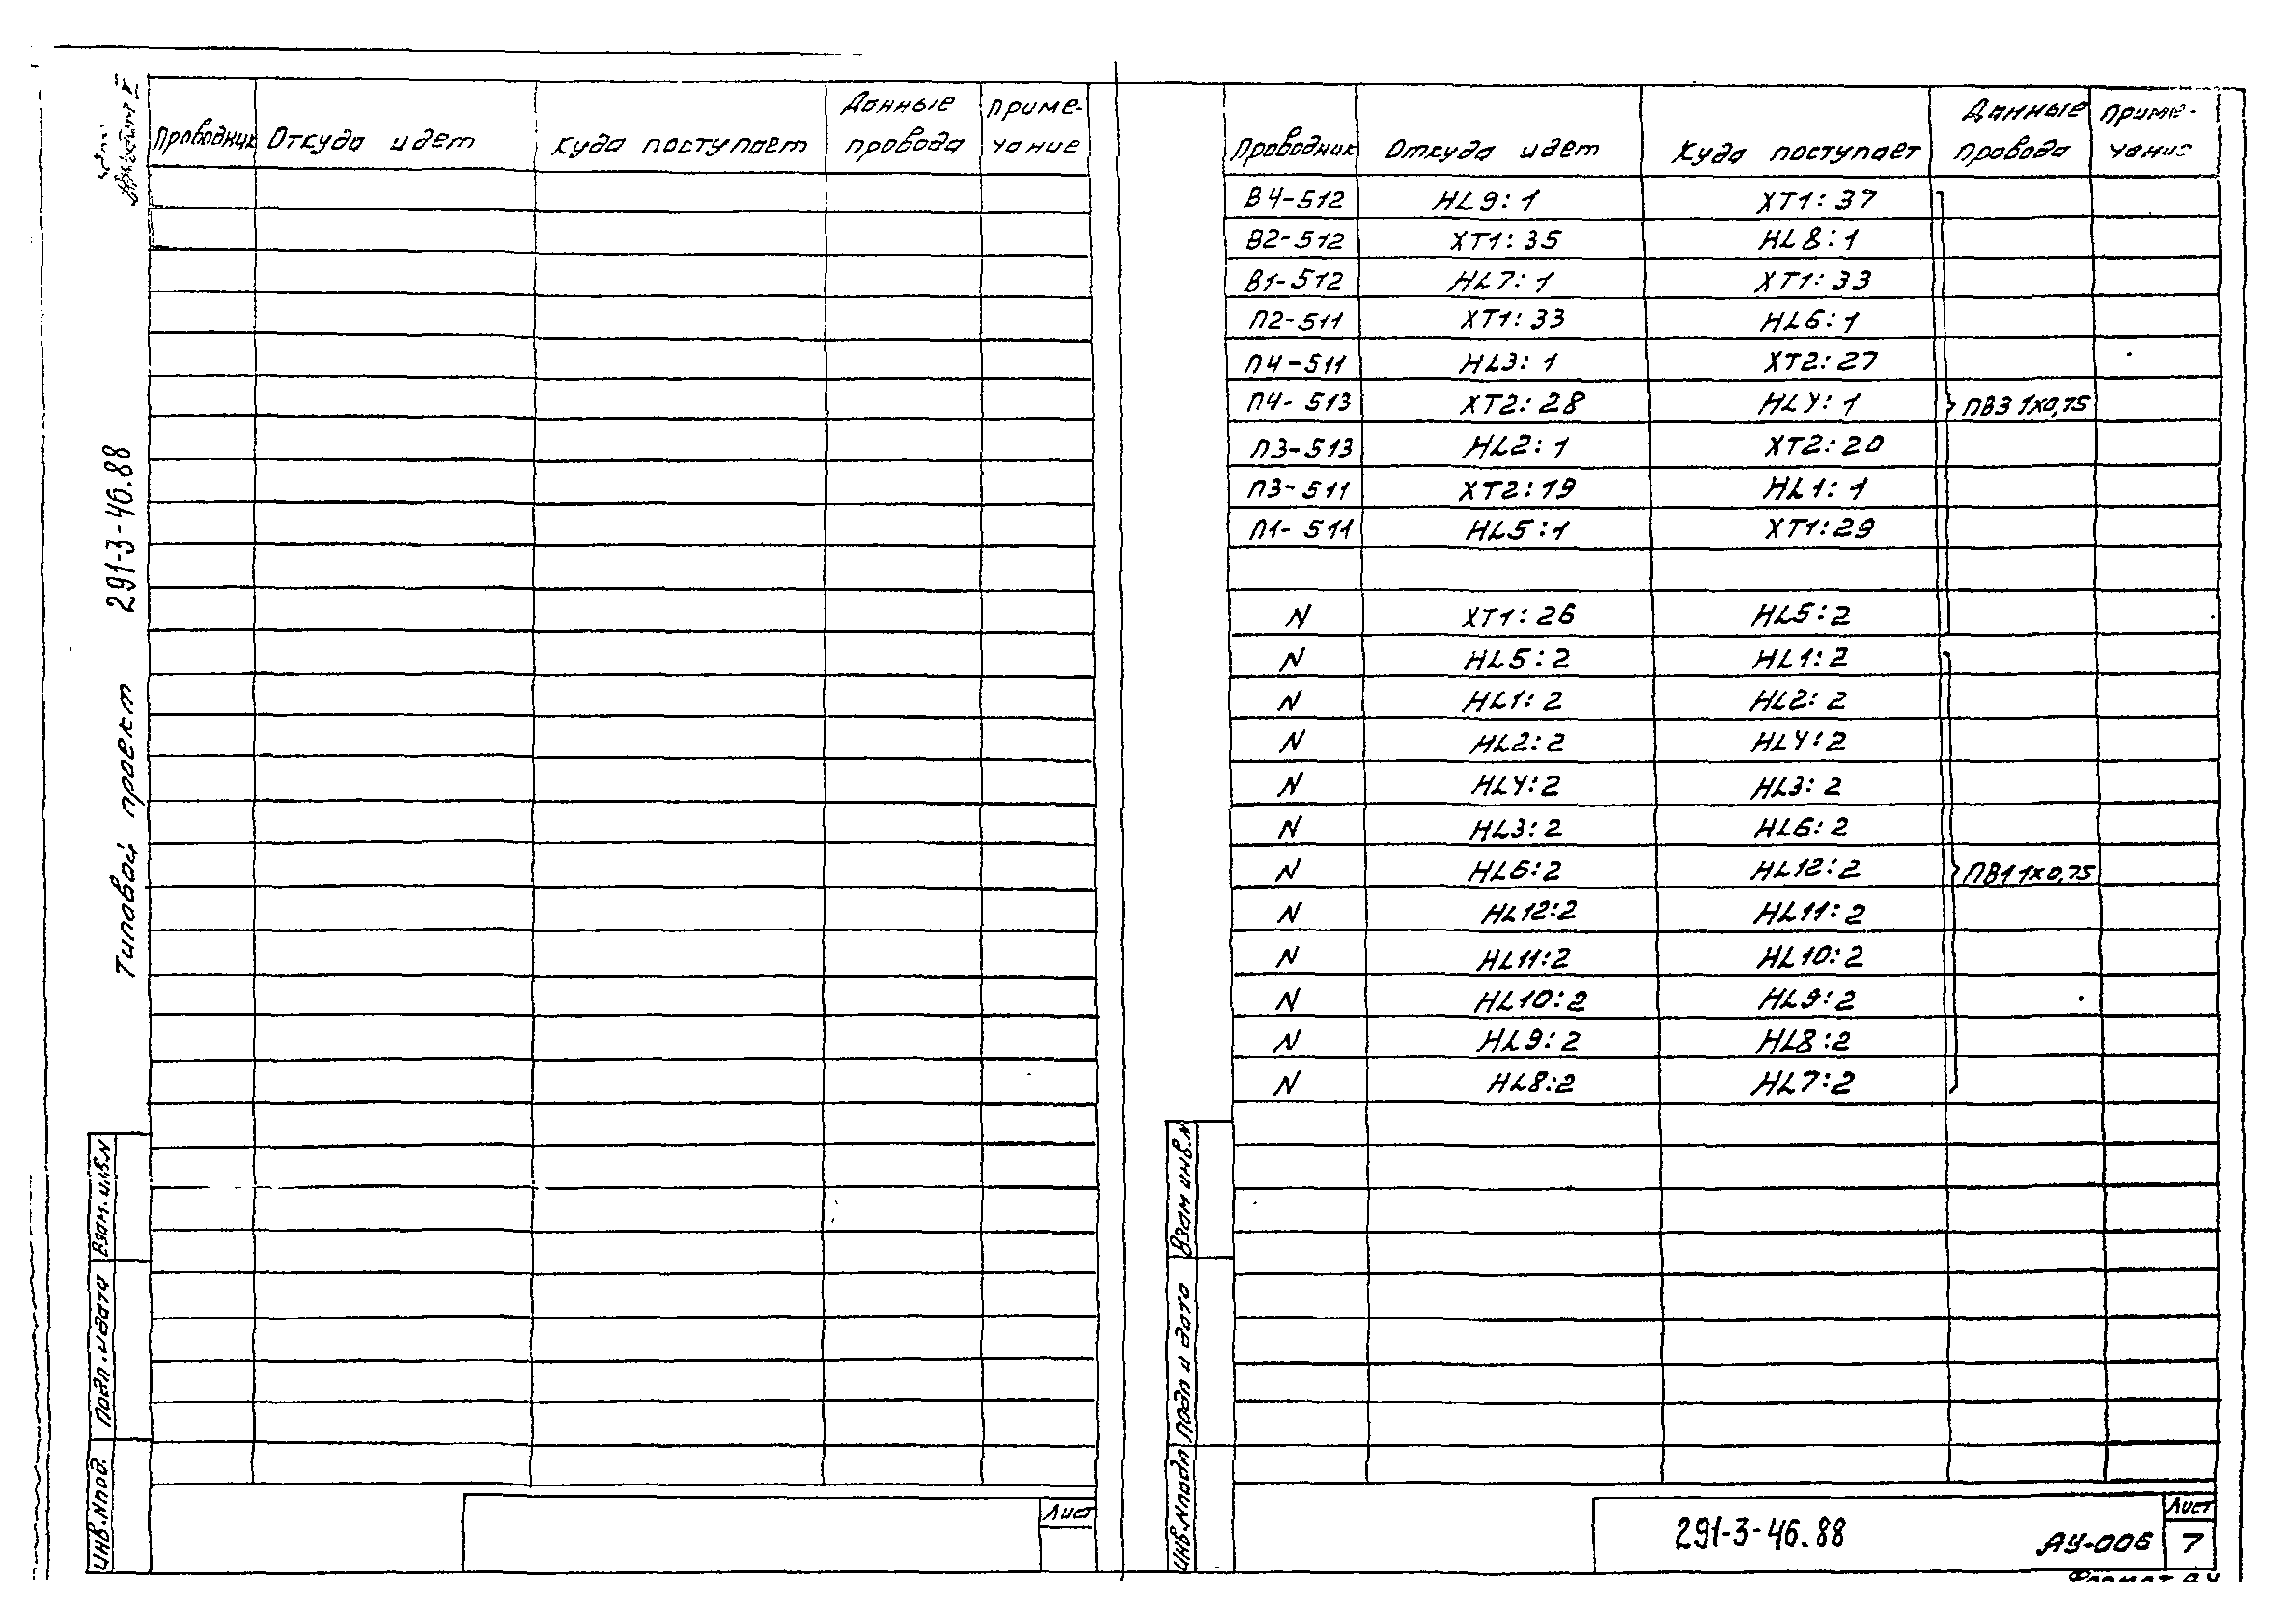 Альбом I
Типовой проект 291-3-46.88
Проводник Откуда идет Куда поступает Данные провода Приме-чание
Взам. инв.N
Подп. и дата
Инв.Nпод.
Лист
Проводник Откуда идет Куда поступает Данные провода Приме-чание
В4-512 HL9:1 XT1:37
В2-512 XT1:35 HL8:1
В1-512 HL7:1 XT1:33
П2-511 XT1:33 HL6:1
П4-511 HL3:1 XT2:27
П4-513 XT2:28 HL4:1 ПВ3 1х0,75
П3-513 HL2:1 XT2:20
П3-511 XT2:19 HL1:1
П1-511 HL5:1 XT1:29
N XT1:26 HL5:2
N HL5:2 HL1:2
N HL1:2 HL2:2
N HL2:2 HL4:2
N HL4:2 HL3:2
N HL3:2 HL6:2
N HL6:2 HL12:2 ПВ1 1х0,75
N HL12:2 HL11:2
N HL11:2 HL10:2
N HL10:2 HL9:2
N HL9:2 HL8:2
N HL8:2 HL7:2
Взам инв.N
Подп и дата
Инв.Nподл
291-3-46.88 АУ-006
Лист
7